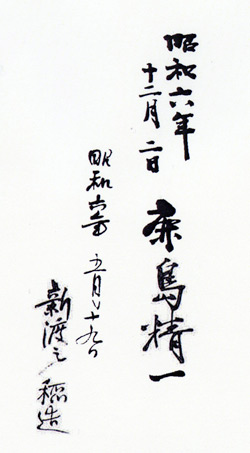 昭和六年
十二月二日
島精一
昭和六年 五月十九日
新渡戸
稲造